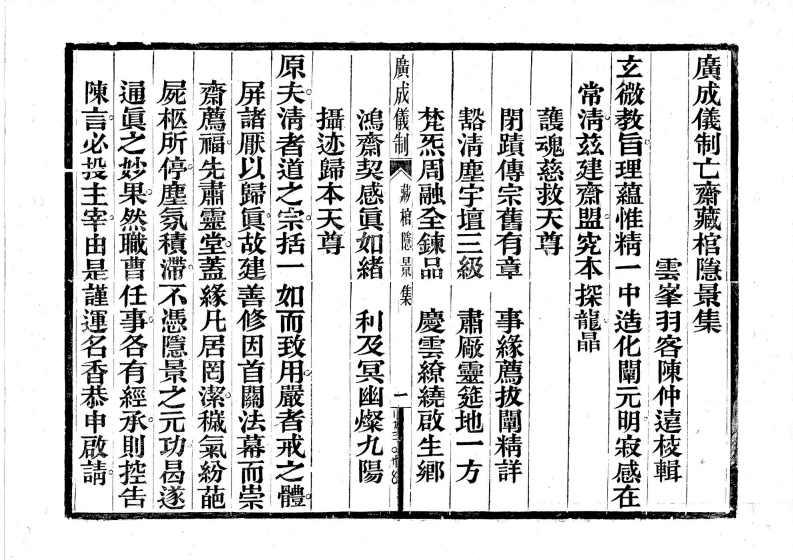 廣成儀制亡齋藏棺隱景集
雲峯羽客陳仲遠校輯
玄微教旨理蘊惟精一中造化闡元明寂感在
常清玆建齋盟究本探龍晶
護魂慈救天尊
閉蹟傳宗舊有章　事緣薦拔闡精詳
豁清塵宇壇三級　肅厰靈筵地一方
梵炁周融全鍊品　慶雲繚繞啟生鄉
廣成儀制　藏棺隱景集　一
鴻齋契感眞如緒　利及冥幽燦九陽
攝迹歸本天尊
原夫清者道之宗括一如而致用嚴者戒之體
屏諸厭以歸眞故建善修因首關法幕而崇
齋薦福先肅靈堂蓋緣凡居罔潔穢氣紛葩
屍柩所停塵氛積滯不憑隱景之元功曷遂
通眞之妙果然職曹任事各有經承則控告
陳言必投主宰由是謹運名香恭申啟請